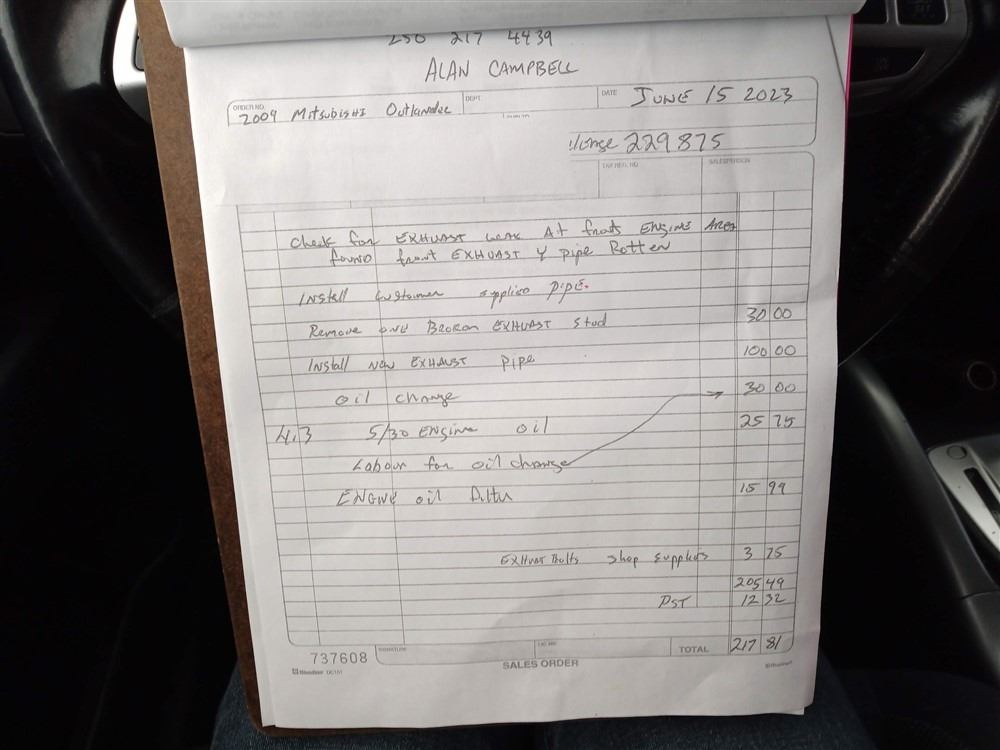 250 217 4439
ALAN CAMPBELL
ORDER NO.
2009 MITSUBISHI Outlander
DEPT.
DATE
JUNE 15 2023
229875
TAX REG. NO.
SALESPERSON
Check for EXHUAST LEAK At front ENGINE AREA
found front EXHUAST Y pipe Rotten
INSTALL customer supplied PIPE.
Remove one Broken EXHUAST stud 30 00
INSTALL New EXHAUST PIPE 100 00
oil change 30 00
4.3 5/30 ENGINE oil 25 75
Labour for oil change
ENGINE oil filter 15 99
EXHUAST Bolts shop supplies 3 75
205 49
PST 12 32
TOTAL 217 81
737608
SIGNATURE
SALES ORDER
Blueline DC151
Blueline